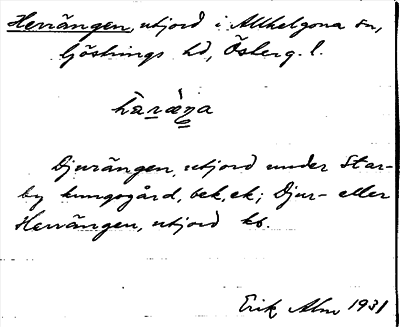 Herrängen, utjord i Allhelgona sn,
Göstrings hd, Österg. l.
hæ̀ræ̀ŋa
Djurängen, utjord under Star-
by kungsgård, bek, ek; Djur- eller
Herrängen, utjord kb.
Erik Alm 1931